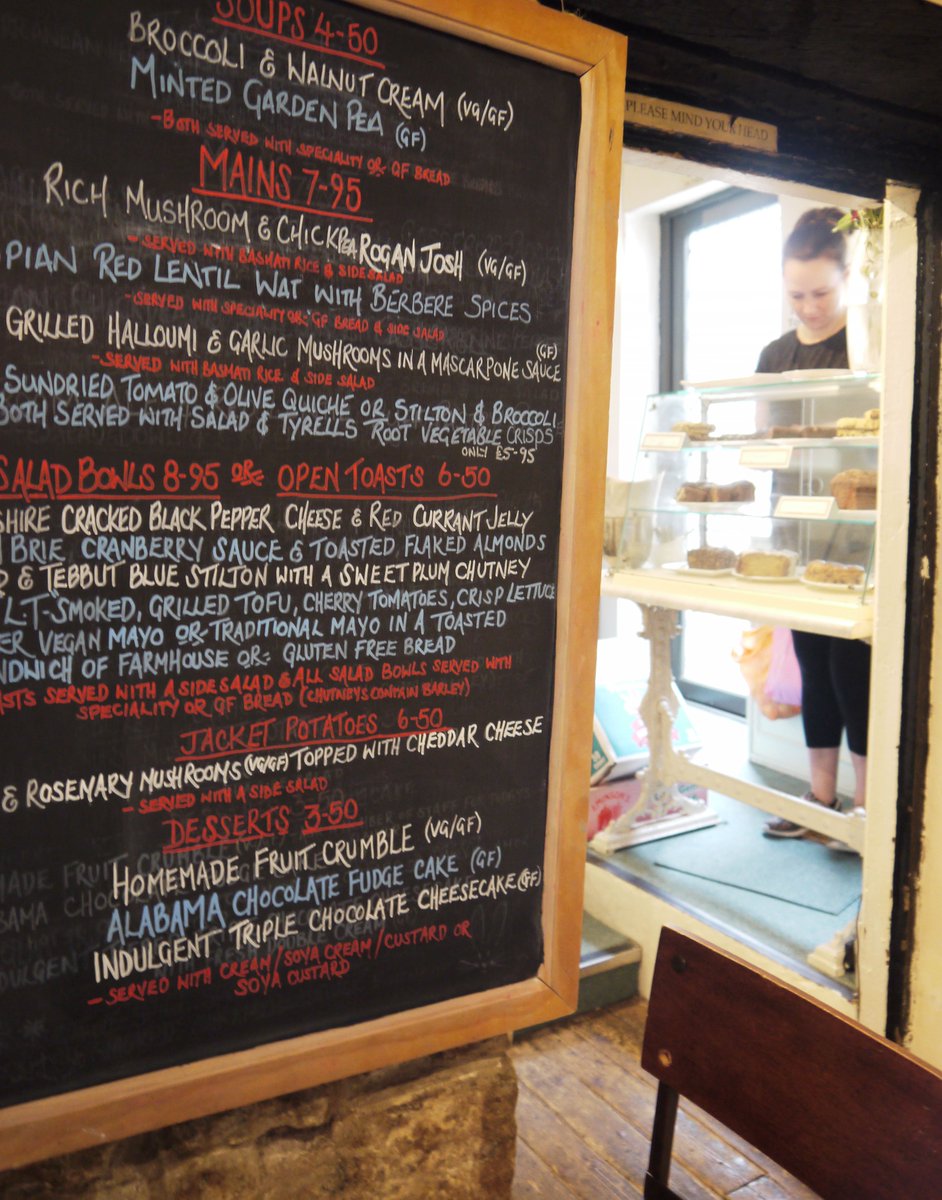 SOUPS 4-50
BROCCOLI & WALNUT CREAM (VG/GF)
MINTED GARDEN PEA (GF)
- BOTH SERVED WITH SPECIALITY OR GF BREAD
MAINS 7-95
RICH MUSHROOM & CHICKPEA ROGAN JOSH (VG/GF)
- SERVED WITH BASMATI RICE & SIDE SALAD
PIAN RED LENTIL WAT WITH BERBERE SPICES
- SERVED WITH SPECIALITY OR GF BREAD & SIDE SALAD
GRILLED HALLOUMI & GARLIC MUSHROOMS IN A MASCARPONE SAUCE (GF)
- SERVED WITH BASMATI RICE & SIDE SALAD
SUNDRIED TOMATO & OLIVE QUICHE OR STILTON & BROCCOLI
BOTH SERVED WITH SALAD & TYRELLS ROOT VEGETABLE CRISPS
ONLY £5-95
SALAD BOWLS 8-95 OR OPEN TOASTS 6-50
SHIRE CRACKED BLACK PEPPER CHEESE & RED CURRANT JELLY
BRIE, CRANBERRY SAUCE & TOASTED FLAKED ALMONDS
& TEBBUT BLUE STILTON WITH A SWEET PLUM CHUTNEY
LT-SMOKED, GRILLED TOFU, CHERRY TOMATOES, CRISP LETTUCE
ER VEGAN MAYO OR TRADITIONAL MAYO IN A TOASTED
NDWICH OF FARMHOUSE OR GLUTEN FREE BREAD
ASTS SERVED WITH A SIDE SALAD & ALL SALAD BOWLS SERVED WITH
SPECIALITY OR GF BREAD (CHUTNEYS CONTAIN BARLEY)
JACKET POTATOES 6-50
& ROSEMARY MUSHROOMS (VG/GF) TOPPED WITH CHEDDAR CHEESE
- SERVED WITH A SIDE SALAD
DESSERTS 3-50
HOMEMADE FRUIT CRUMBLE (VG/GF)
ALABAMA CHOCOLATE FUDGE CAKE (GF)
INDULGENT TRIPLE CHOCOLATE CHEESECAKE (GF)
- SERVED WITH CREAM/SOYA CREAM/CUSTARD OR
SOYA CUSTARD
PLEASE MIND YOUR HEAD